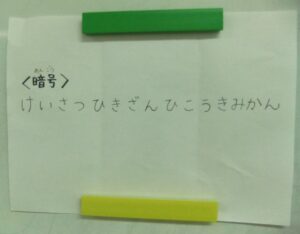 〈暗号〉
けいさつひきざんひこうきみかん